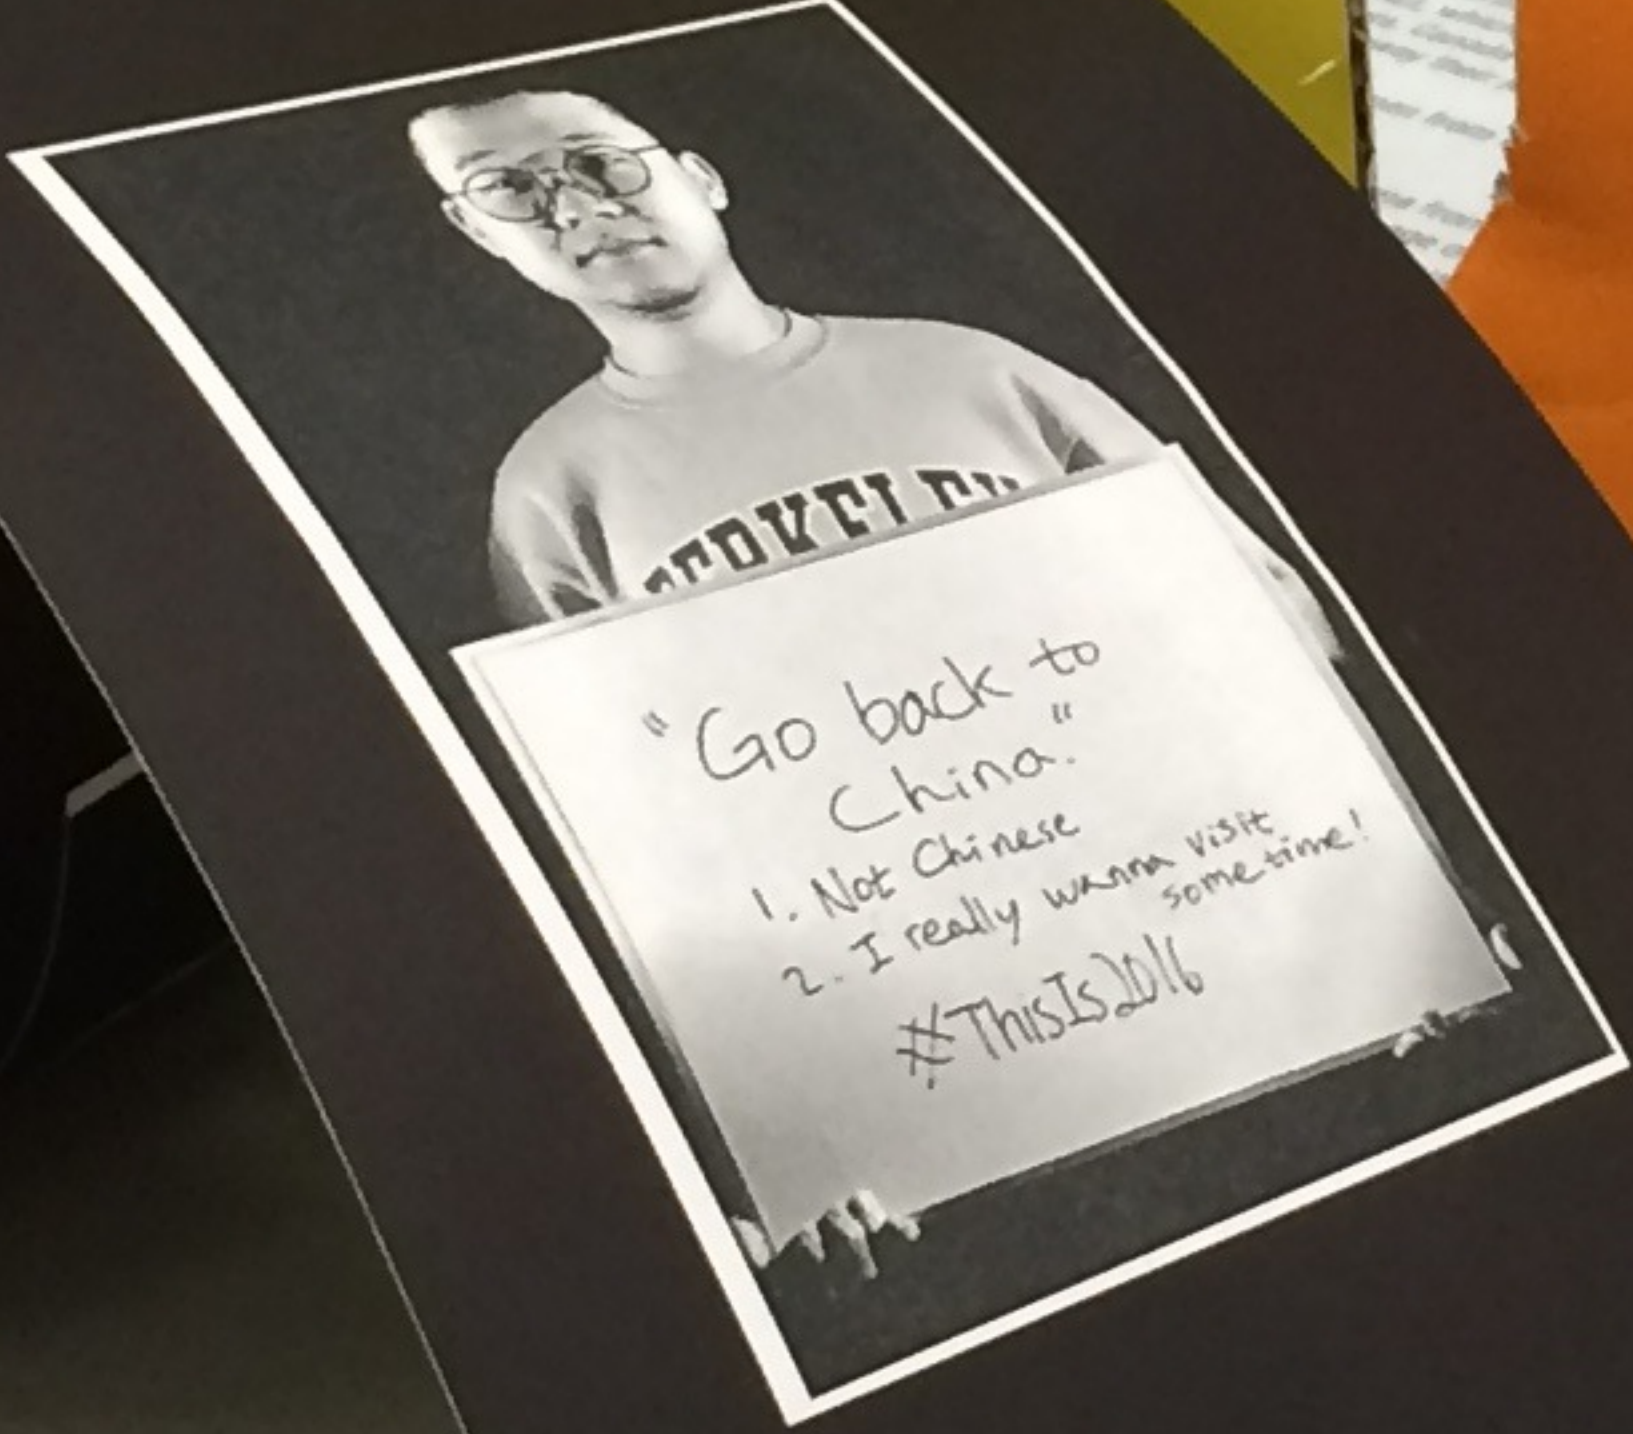 BERKELEY
"Go back to
China."
1. Not Chinese
2. I really wanna visit
sometime!
#ThisIs2016